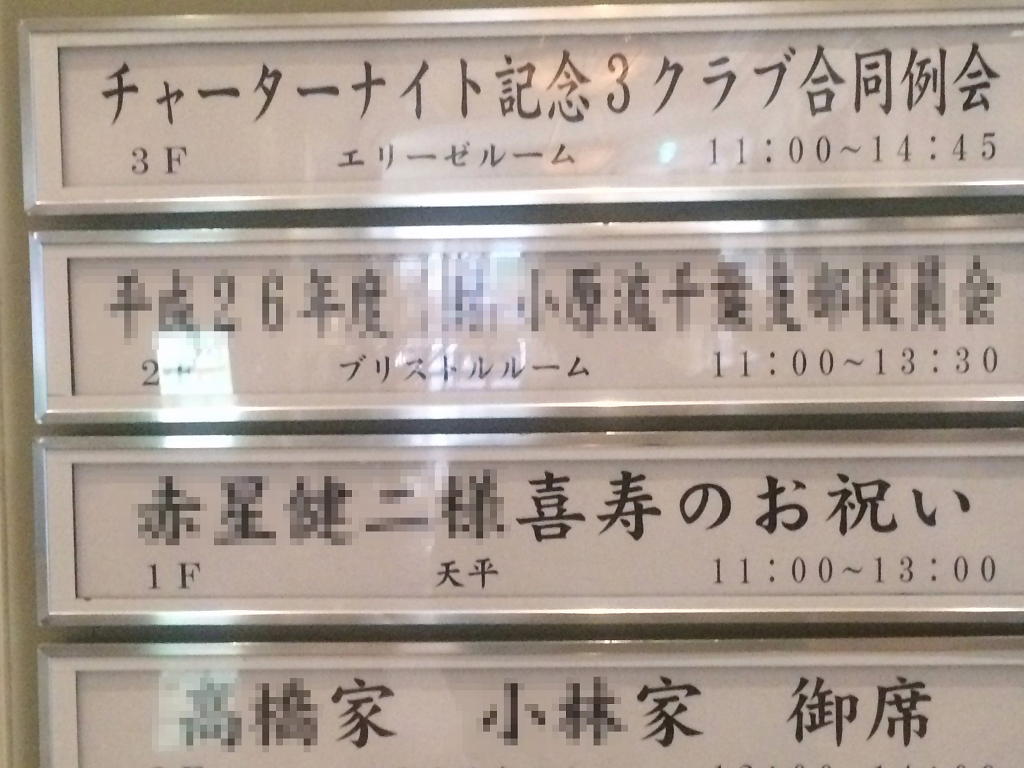 チャーターナイト記念3クラブ合同例会
3F エリーゼルーム 11:00~14:45
平成26年度 小原流千葉支部役員会
2F ブリストルルーム 11:00~13:30
喜寿のお祝い
1F 天平 11:00~13:00
家 家 御席